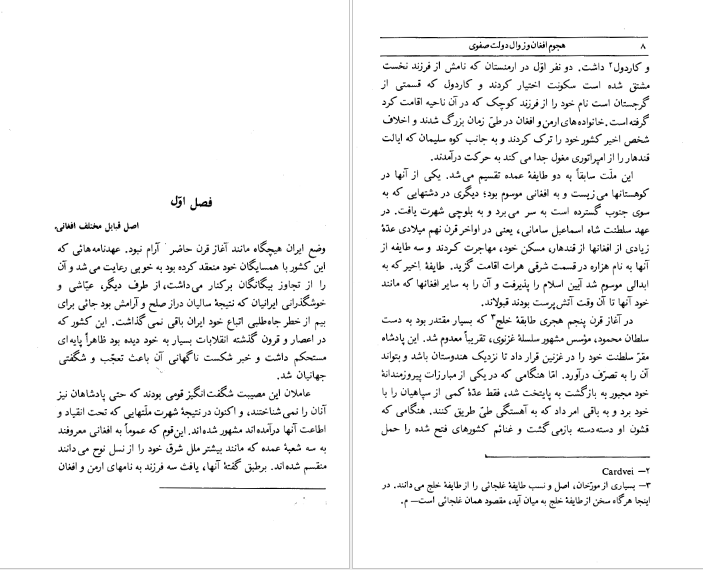 فصل اوّل
اصل قبایل مختلف افغانی.
وضع ایران هیچگاه مانند آغاز قرن حاضر آرام نبود. عهدنامه‌هائی که
این کشور با همسایگان خود منعقد کرده بود به خوبی رعایت می‌شد و آن
را از تجاوز بیگانگان برکنار می‌داشت، از طرف دیگر، عیّاشی و
خوشگذرانی ایرانیان که نتیجهٔ سالیان دراز صلح و آرامش بود جائی برای
بیم از خطر جاه‌طلبی اتباع خود ایران باقی نمی‌گذاشت. این کشور که
در اعصار و قرون گذشته انقلابات بسیار به خود دیده بود ظاهراً پایه‌ای
مستحکم داشت و خبر شکست ناگهانی آن باعث تعجّب و شگفتی
جهانیان شد.
عاملان این مصیبت شگفت‌انگیز قومی بودند که حتی پادشاهان نیز
آنان را نمی‌شناختند، و اکنون در نتیجهٔ شهرت ملّتهایی که تحت انقیاد و
اطاعت آنها درآمده‌اند مشهور شده‌اند. این قوم که عموماً به افغانی معروفند
به سه شعبهٔ عمده که مانند بیشتر ملل شرق خود را از نسل نوح می‌دانند
منقسم شده‌اند. برطبق گفتهٔ آنها، یافث سه فرزند به نامهای ارمن و افغان
۸ هجوم افغان و زوال دولت صفوی
و کاردول۲ داشت. دو نفر اوّل در ارمنستان که نامش از فرزند نخست
مشتق شده است سکونت اختیار کردند و کاردول که قسمتی از
گرجستان است نام خود را از فرزند کوچک که در آن ناحیه اقامت کرد
گرفته است. خانواده‌های ارمن و افغان در طیّ زمان بزرگ شدند و اخلاف
شخص اخیر کشور خود را ترک کردند و به جانب کوه سلیمان که ایالت
قندهار را از امپراتوری مغول جدا می کند به حرکت درآمدند.
این ملّت سابقاً به دو طایفهٔ عمده تقسیم می‌شد. یکی از آنها در
کوهستانها می‌زیست و به افغانی موسوم بود؛ دیگری در دشتهایی که به
سوی جنوب گسترده است به سر می‌برد و به بلوچی شهرت یافت. در
عهد سلطنت شاه اسماعیل سامانی، یعنی در اواخر قرن نهم میلادی عدّهٔ
زیادی از افغانها از قندهار، مسکن خود، مهاجرت کردند و سه طایفه از
آنها به نام هزاره در قسمت شرقی هرات اقامت گزید. طایفهٔ اخیر که به
ابدالی موسوم شد آیین اسلام را پذیرفت و آن را به سایر افغانها که مانند
خود آنها تا آن وقت آتش‌پرست بودند قبولاند.
در آغاز قرن پنجم هجری طایفهٔ خلج۳ که بسیار مقتدر بود به دست
سلطان محمود، مؤسس مشهور سلسلهٔ غزنوی، تقریباً معدوم شد. این پادشاه
مقرّ سلطنت خود را در غزنین قرار داد تا نزدیک هندوستان باشد و بتواند
آن را به تصرّف درآورد. امّا هنگامی که در یکی از مبارزات پیروزمندانهٔ
خود مجبور به بازگشت به پایتخت شد، فقط عدّهٔ کمی از سپاهیان را با
خود برد و به باقی امر داد که به آهستگی طیّ طریق کنند. هنگامی که
قشون او دسته‌دسته بازمی‌گشت و غنائم کشورهای فتح شده را حمل
۲— Cardvei
۳— بسیاری از مورّخان، اصل و نسب طایفهٔ غلجائی را از طایفهٔ خلج می‌دانند. در
اینجا هرگاه سخن از طایفهٔ خلج به میان آید، مقصود همان غلجائی است— م.